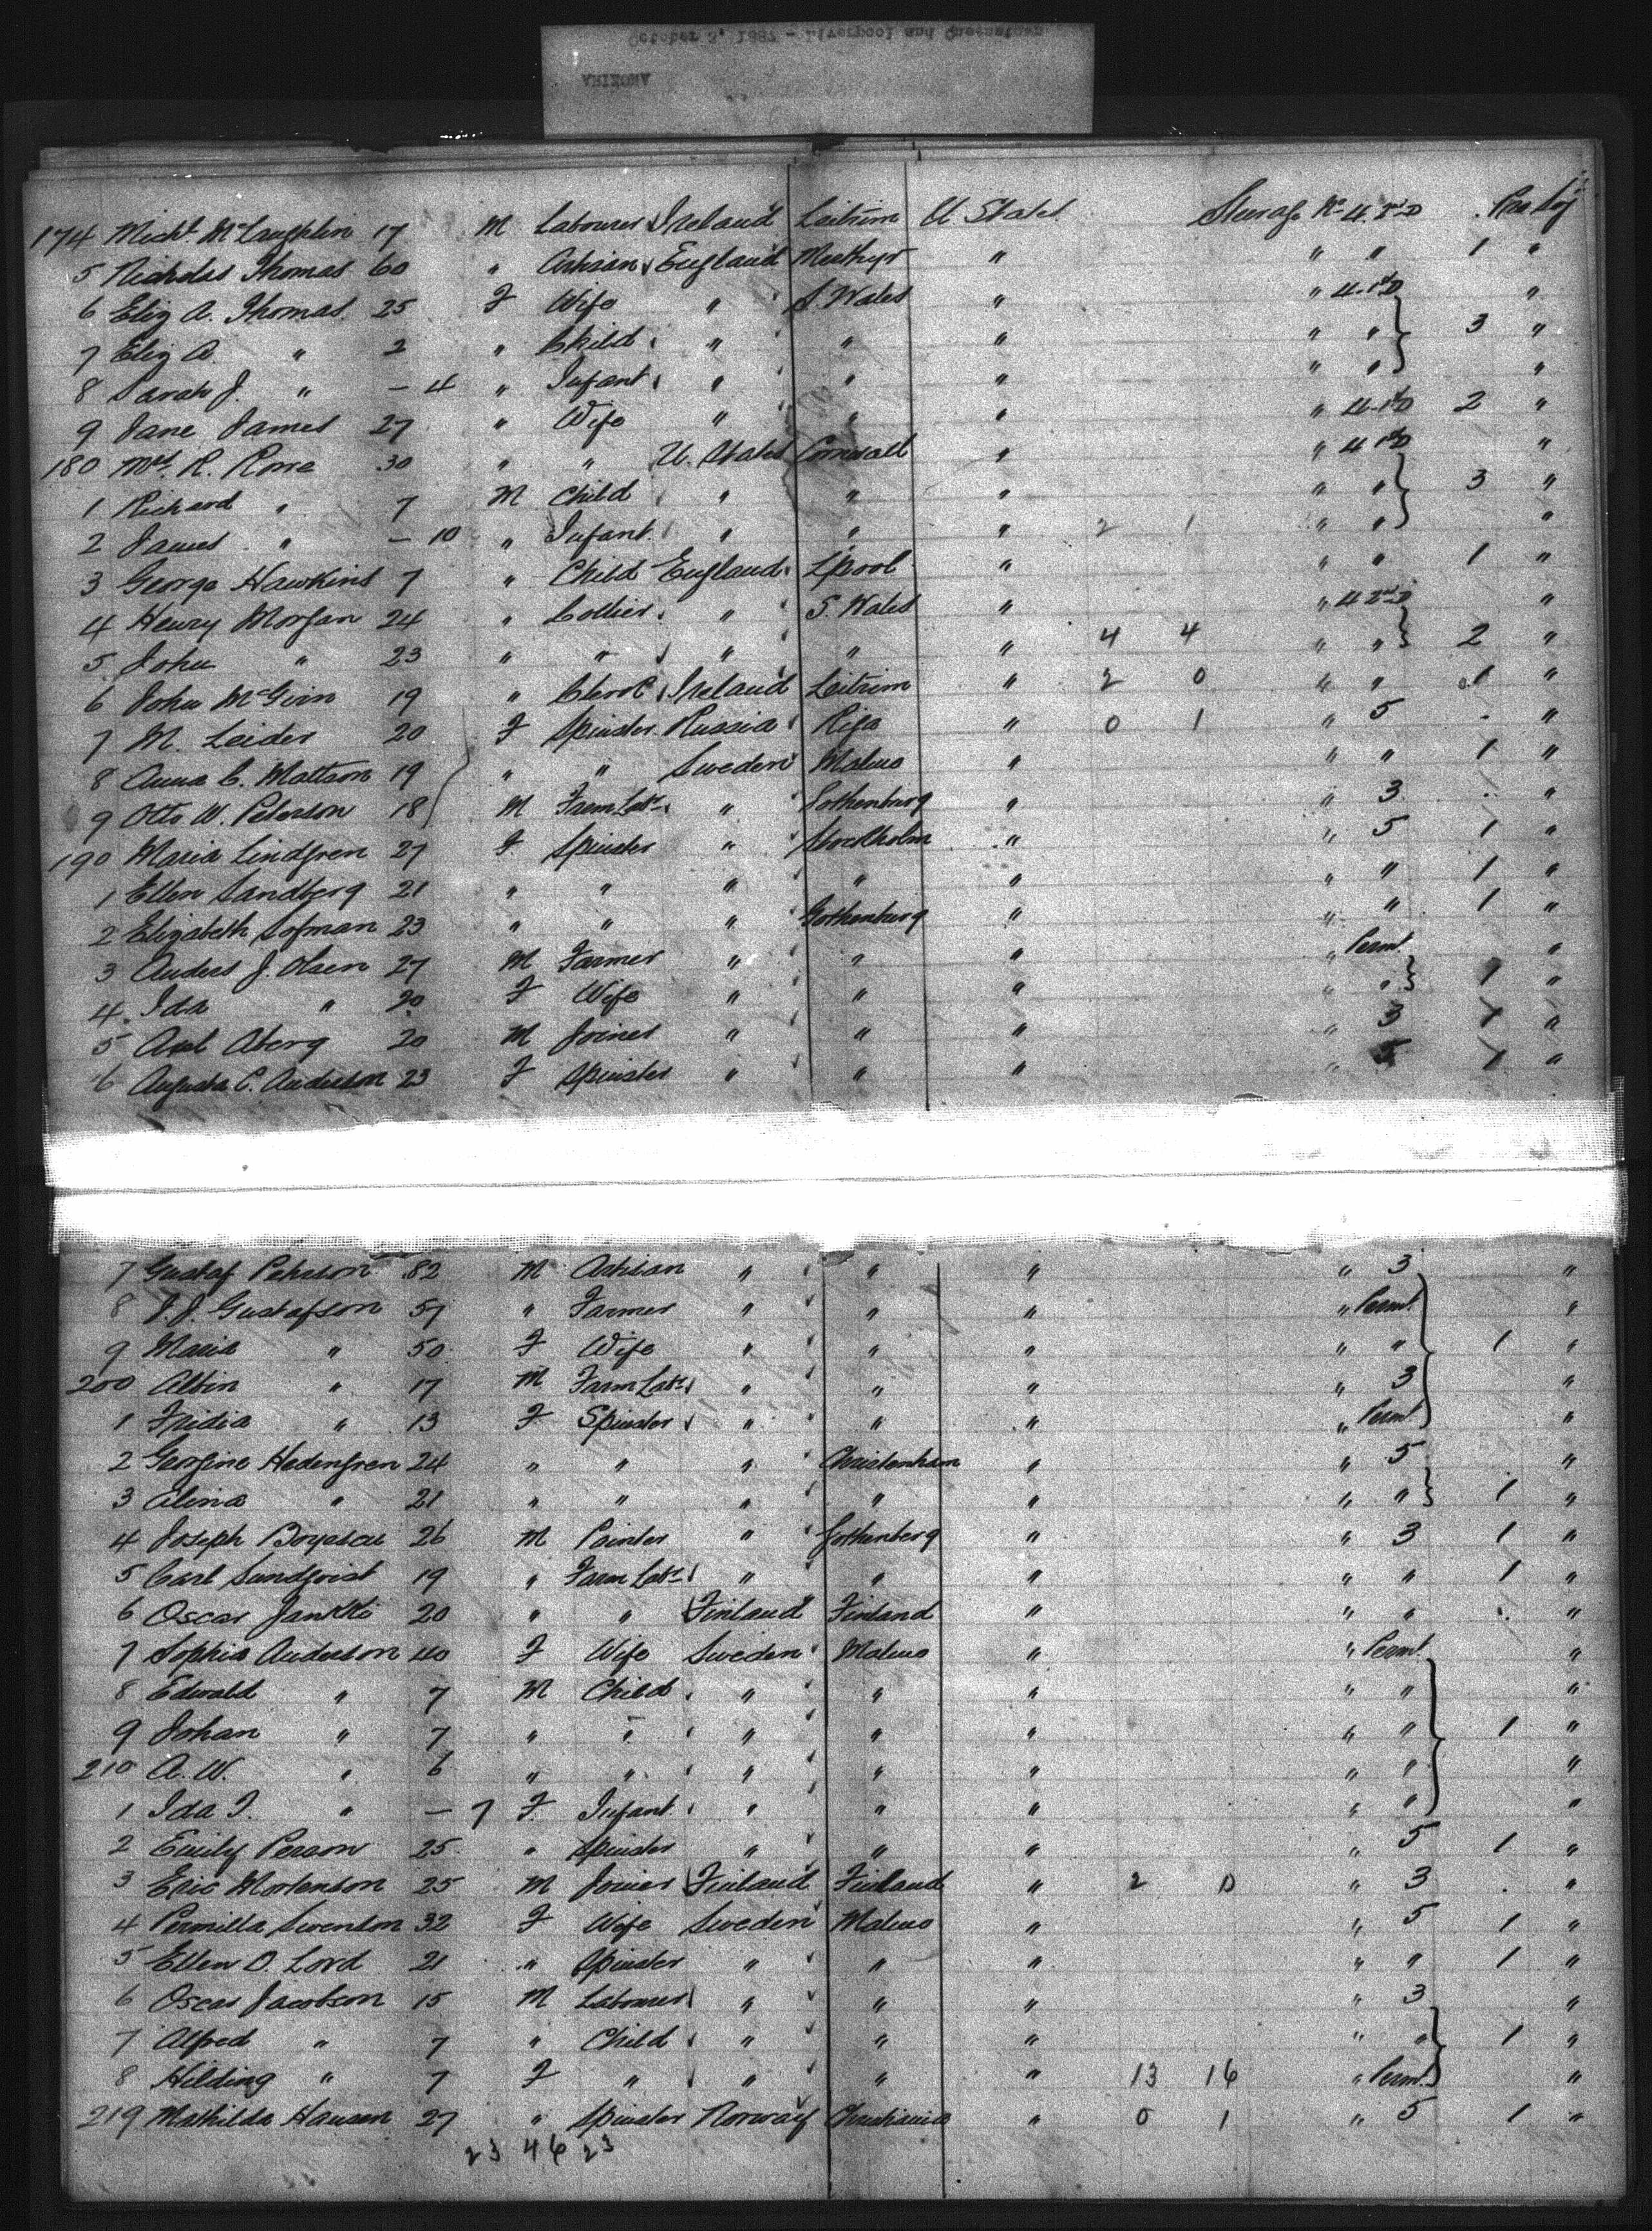 October 3, 1887 - Liverpool and Queenstown
ARIZONA
174 Michl. McLaughlin 17 M Labourer Ireland Leitrim U States Steerage No 4 2nd D Pro Soj
5 Nicholas Thomas 60 " Artisan England Merthyr " " " 1 "
6 Eliz A. Thomas 25 F Wife " S. Wales " " 4-1st D "
7 Eliz A. " 2 " Child " " " " " 3 "
8 Sarah J. " - 4 " Infant " " " " " "
9 Jane James 27 " Wife " " " " 4-1st D 2 "
180 Mrs. R. Rowe 30 " " U. States Cornwall " " 4 1st D "
1 Richard " 7 M Child " " " " " 3 "
2 James " - 10 " Infant " " " 2 1 " " "
3 George Hawkins 7 " Child England Lpool " " " 1 "
4 Henry Morgan 24 " Collier " S. Wales " " 4 2nd D "
5 John " 23 " " " " " 4 4 " " 2 "
6 John McGirn 19 " Clerk Ireland Leitrim " 2 0 " " 1 "
7 M. Leider 20 F Spinster Russia Riga " 0 1 " 5 . "
8 Anna C. Mattson 19 " " Sweden Malmo " " " 1 "
9 Otto W. Peterson 18 M Farm Labr " Gothenburg " " 3 . "
190 Maria Lindgren 27 F Spinster " Stockholm " " 5 1 "
1 Ellen Sandberg 21 " " " " " " " 1 "
2 Elizabeth Sofman 23 " " " Gothenburg " " " 1 "
3 Anders J. Olsen 27 M Farmer " " " " Permt. "
4 Ida " 20 F Wife " " " " " 1 "
5 Axel Aberg 20 M Joiner " " " " 3 1 "
6 Augusta C. Anderson 23 F Spinster " " " " 5 1 "
7 Gustaf Peterson 82 M Artisan " " " " 3 "
8 J. J. Gustafson 57 " Farmer " " " " Permt. "
9 Maria " 50 F Wife " " " " " 1 "
200 Albin " 17 M Farm Labr " " " " 3 "
1 Fridia " 13 F Spinster " " " " Permt. "
2 Georgine Hedengren 24 " " " Christenham " " 5 "
3 Alina " 21 " " " " " " " 1 "
4 Joseph Boyesen 26 M Painter " Gothenberg " " 3 1 "
5 Carl Sundqvist 19 " Farm Labr " " " " " 1 "
6 Oscar Jankki 20 " " Finland Finland " " " . "
7 Sophia Anderson 40 F Wife Sweden Malmo " " Permt. "
8 Edwald " 7 M Child " " " " " "
9 Johan " 7 " " " " " " " 1 "
210 A. W. " 6 " " " " " " " "
1 Ida I. " - 7 F Infant " " " " " "
2 Emily Person 25 " Spinster " " " " 5 1 "
3 Eric Mortenson 25 M Joiner Finland Finland " 2 0 " 3 . "
4 Pernilla Swenson 32 F Wife Sweden Malmo " " 5 1 "
5 Ellen O. Lord 21 " Spinster " " " " " 1 "
6 Oscar Jacobson 15 M Labourer " " " " 3 "
7 Alfred " 7 " Child " " " " " 1 "
8 Hilding " 7 F " " " " 13 16 " Permt. "
219 Mathilda Hansen 27 " Spinster Norway Christiania " 0 1 " 5 1 "
23 46 23